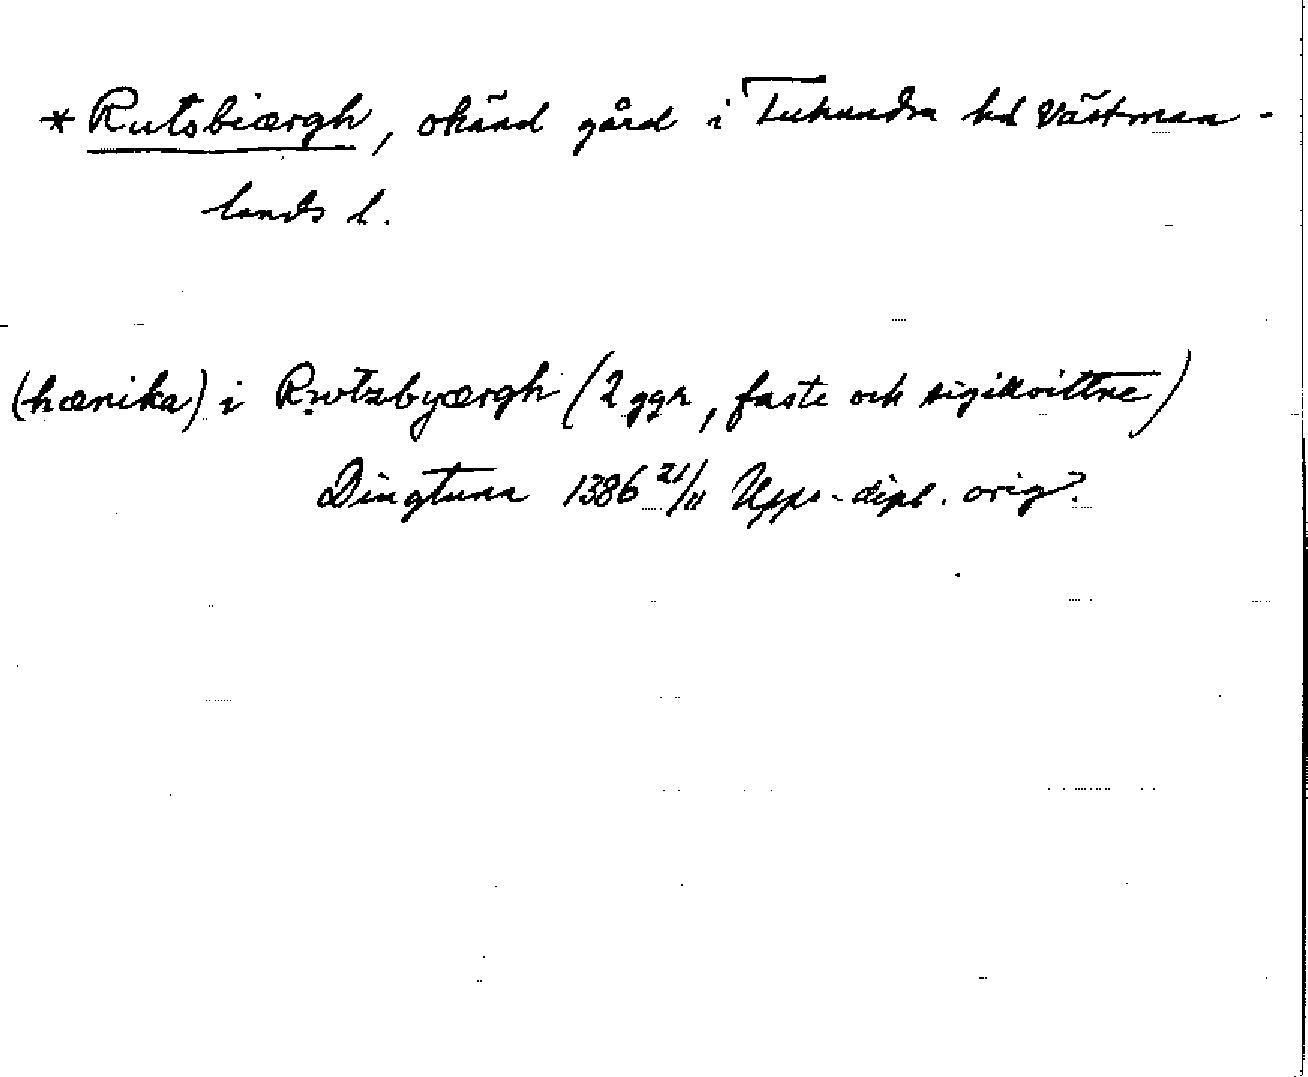 * Rutsbiærgh, okänd gård i Tuhundra hd Västman-
lands l.
(hænika) i Rwtzbyærgh (2 ggr, faste och sigillvittne)
Dingtuna 1386 21/11 Upps-dipl. orig.